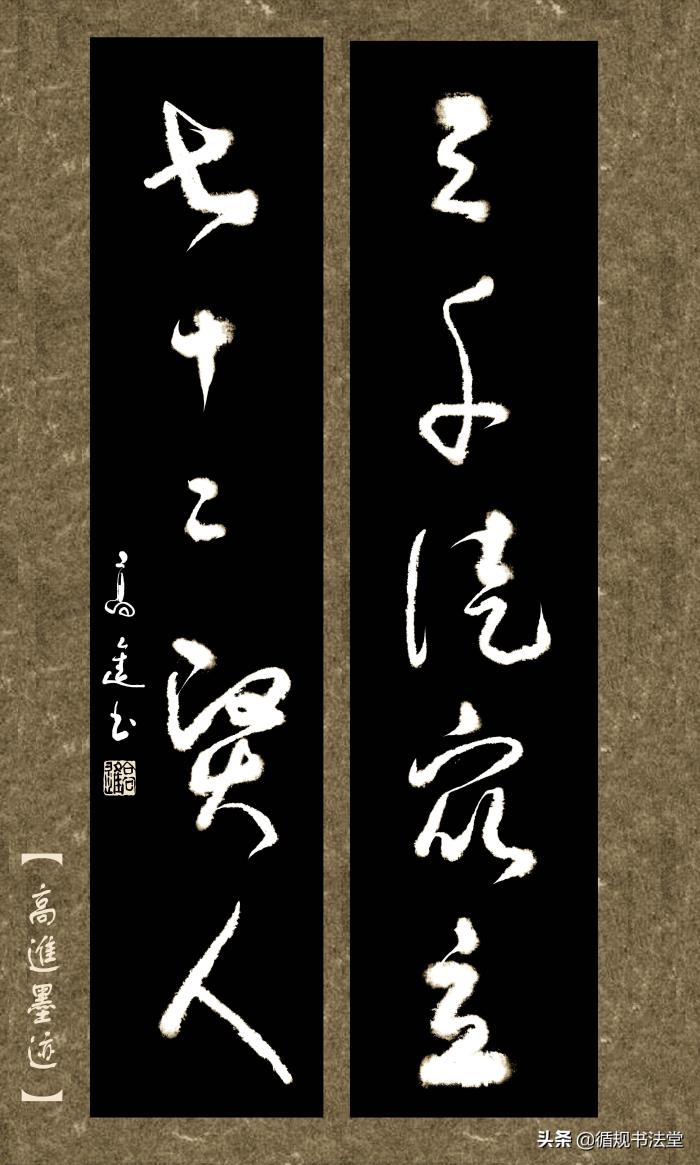 三千徒眾立
七十二賢人
高進书
高進
【高進墨迹】
头条 @循规书法堂